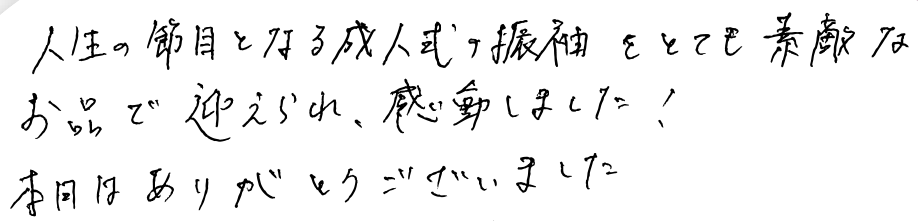 人生の節目となる成人式の振袖をとても素敵な
お品で迎えられ、感動しました!
本日はありがとうございました